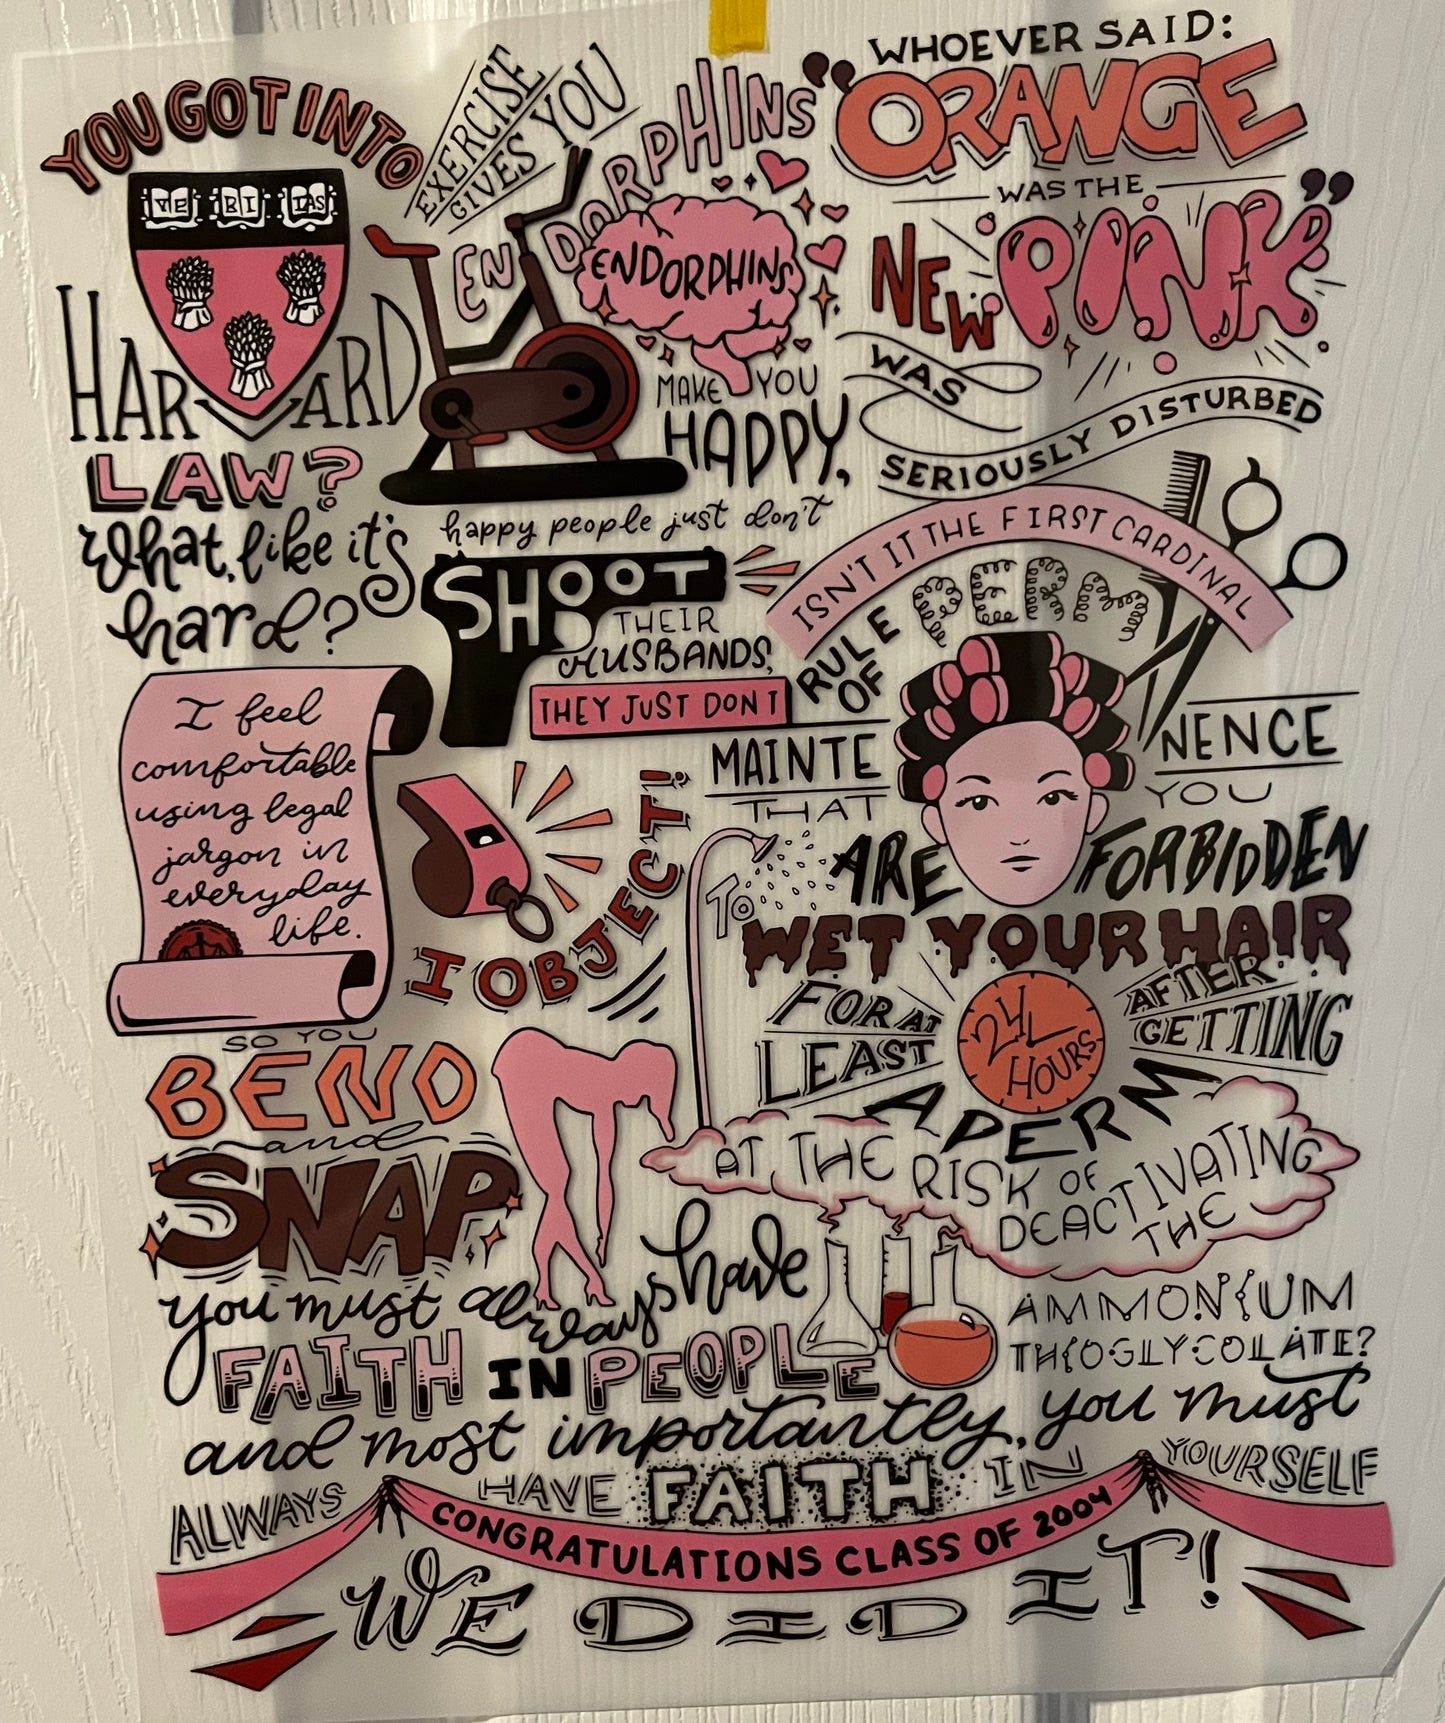 YOU GOT INTO
VE RI TAS
HARVARD
LAW?
What, like it's
hard?
EXERCISE
GIVES YOU
ENDORPHINS"
ENDORPHINS
MAKE YOU
HAPPY,
happy people just don't
SHOOT
THEIR
HUSBANDS,
THEY JUST DON'T
"WHOEVER SAID:
ORANGE
WAS THE
NEW PINK"
WAS
SERIOUSLY DISTURBED
ISN'T IT THE FIRST CARDINAL
RULE
OF
PERM
MAINTE
NENCE
THAT
YOU
ARE
FORBIDDEN
TO
WET YOUR HAIR
FOR AT
LEAST
24
HOURS
AFTER
GETTING
A PERM
AT THE RISK OF
DEACTIVATING
THE
AMMONIUM
THIOGLYCOLATE?
I feel
comfortable
using legal
jargon in
everyday
life.
I OBJECT!
SO YOU
BEND
and
SNAP
you must always have
FAITH IN PEOPLE
and most importantly, you must
ALWAYS HAVE FAITH IN YOURSELF
CONGRATULATIONS CLASS OF 2004
WE DID IT!